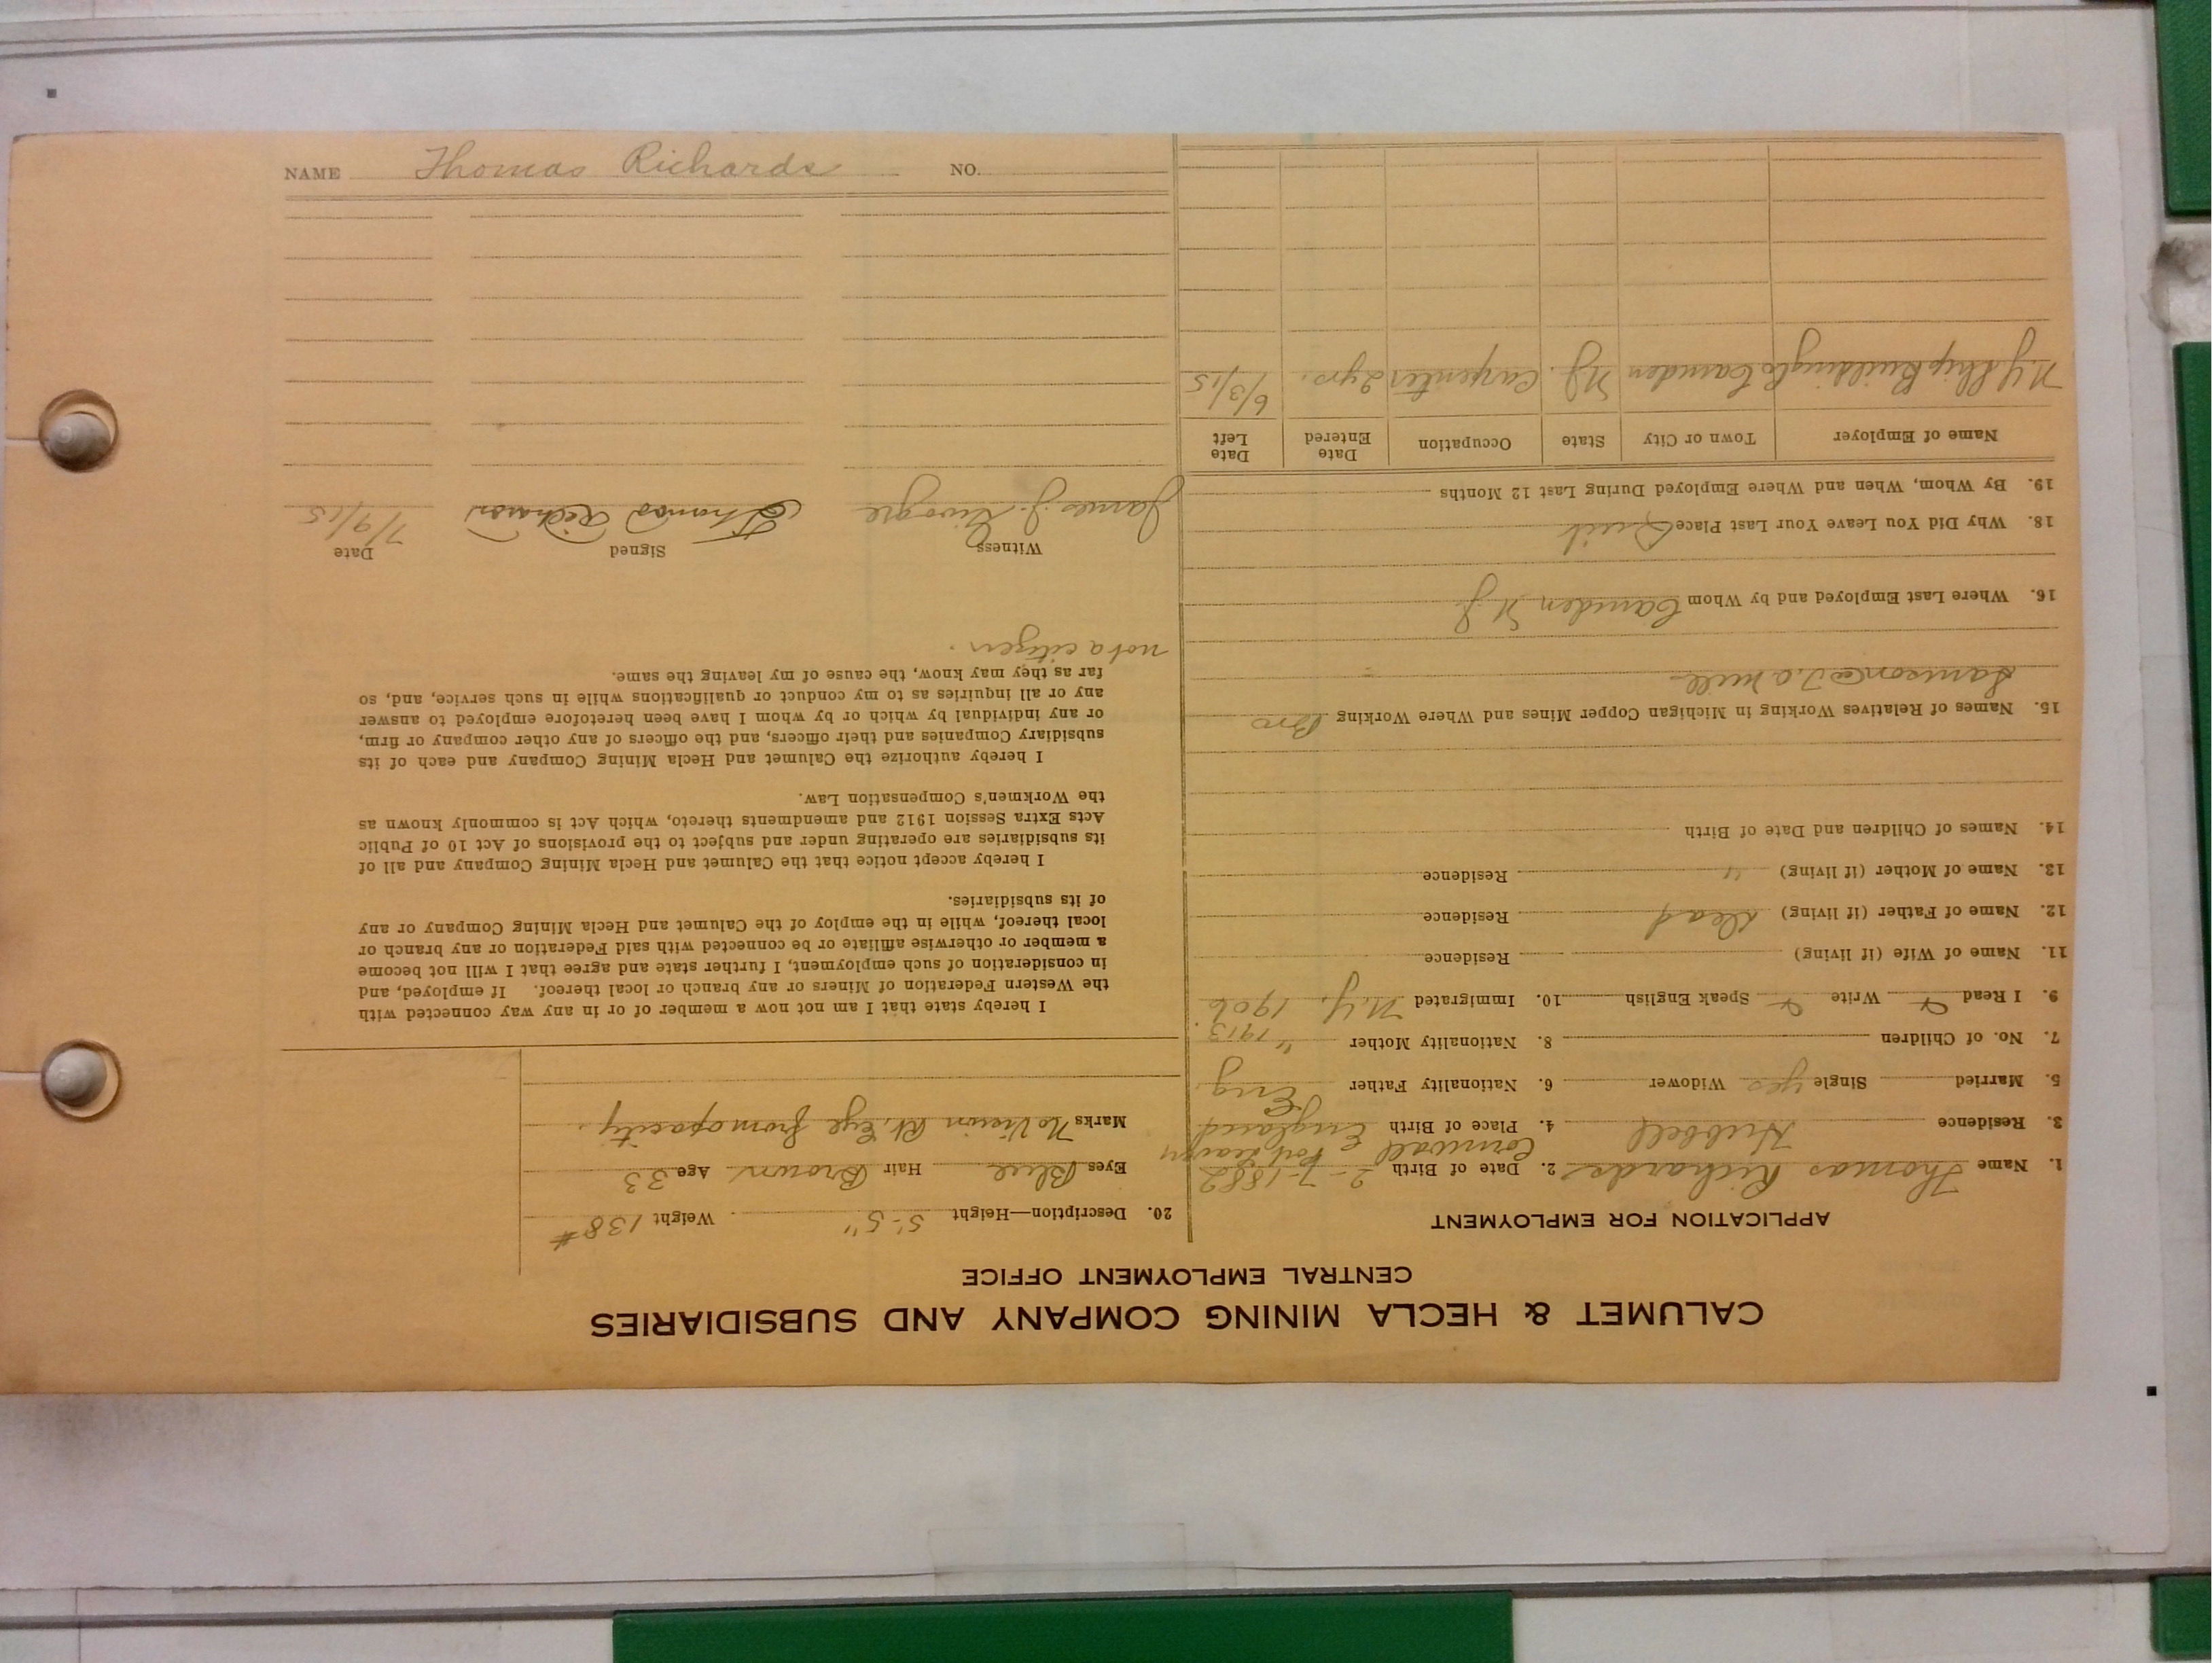 CALUMET & HECLA MINING COMPANY AND SUBSIDIARIES
CENTRAL EMPLOYMENT OFFICE
APPLICATION FOR EMPLOYMENT
1. Name Thomas Richards 2. Date of Birth 2-7-1882
Cornwall E
3. Residence Hubbell 4. Place of Birth England
5. Married Single yes Widower 6. Nationality Father Eng
7. No. of Children 8. Nationality Mother " 1913.
9. I Read Write Speak English 10. Immigrated N.Y. 1906
11. Name of Wife (if living) Residence
12. Name of Father (if living) Dead Residence
13. Name of Mother (if living) " Residence
14. Names of Children and Date of Birth
15. Names of Relatives Working in Michigan Copper Mines and Where Working Bro
mill
16. Where Last Employed and by Whom Camden N.J.
18. Why Did You Leave Your Last Place Quit
19. By Whom, When and Where Employed During Last 12 Months
Name of Employer Town or City State Occupation Date Entered Date Left
N.Y Ship Building Co Camden N.J. Carpenter 2 yrs. 6/3/15
20. Description—Height 5'-5" Weight 138#
Eyes Blue Hair Brown Age 33
Marks No Vision Rt. Eye from opacity.
I hereby state that I am not now a member of or in any way connected with
the Western Federation of Miners or any branch or local thereof. If employed, and
in consideration of such employment, I further state and agree that I will not become
a member or otherwise affiliate or be connected with said Federation or any branch or
local thereof, while in the employ of the Calumet and Hecla Mining Company or any
of its subsidiaries.
I hereby accept notice that the Calumet and Hecla Mining Company and all of
its subsidiaries are operating under and subject to the provisions of Act 10 of Public
Acts Extra Session 1912 and amendments thereto, which Act is commonly known as
the Workmen's Compensation Law.
I hereby authorize the Calumet and Hecla Mining Company and each of its
subsidiary Companies and their officers, and the officers of any other company or firm,
or any individual by which or by whom I have been heretofore employed to answer
any or all inquiries as to my conduct or qualifications while in such service, and, so
far as they may know, the cause of my leaving the same.
not a citizen.
Witness Signed Date
James J. Thomas Richards 7/9/15
NAME Thomas Richards NO.